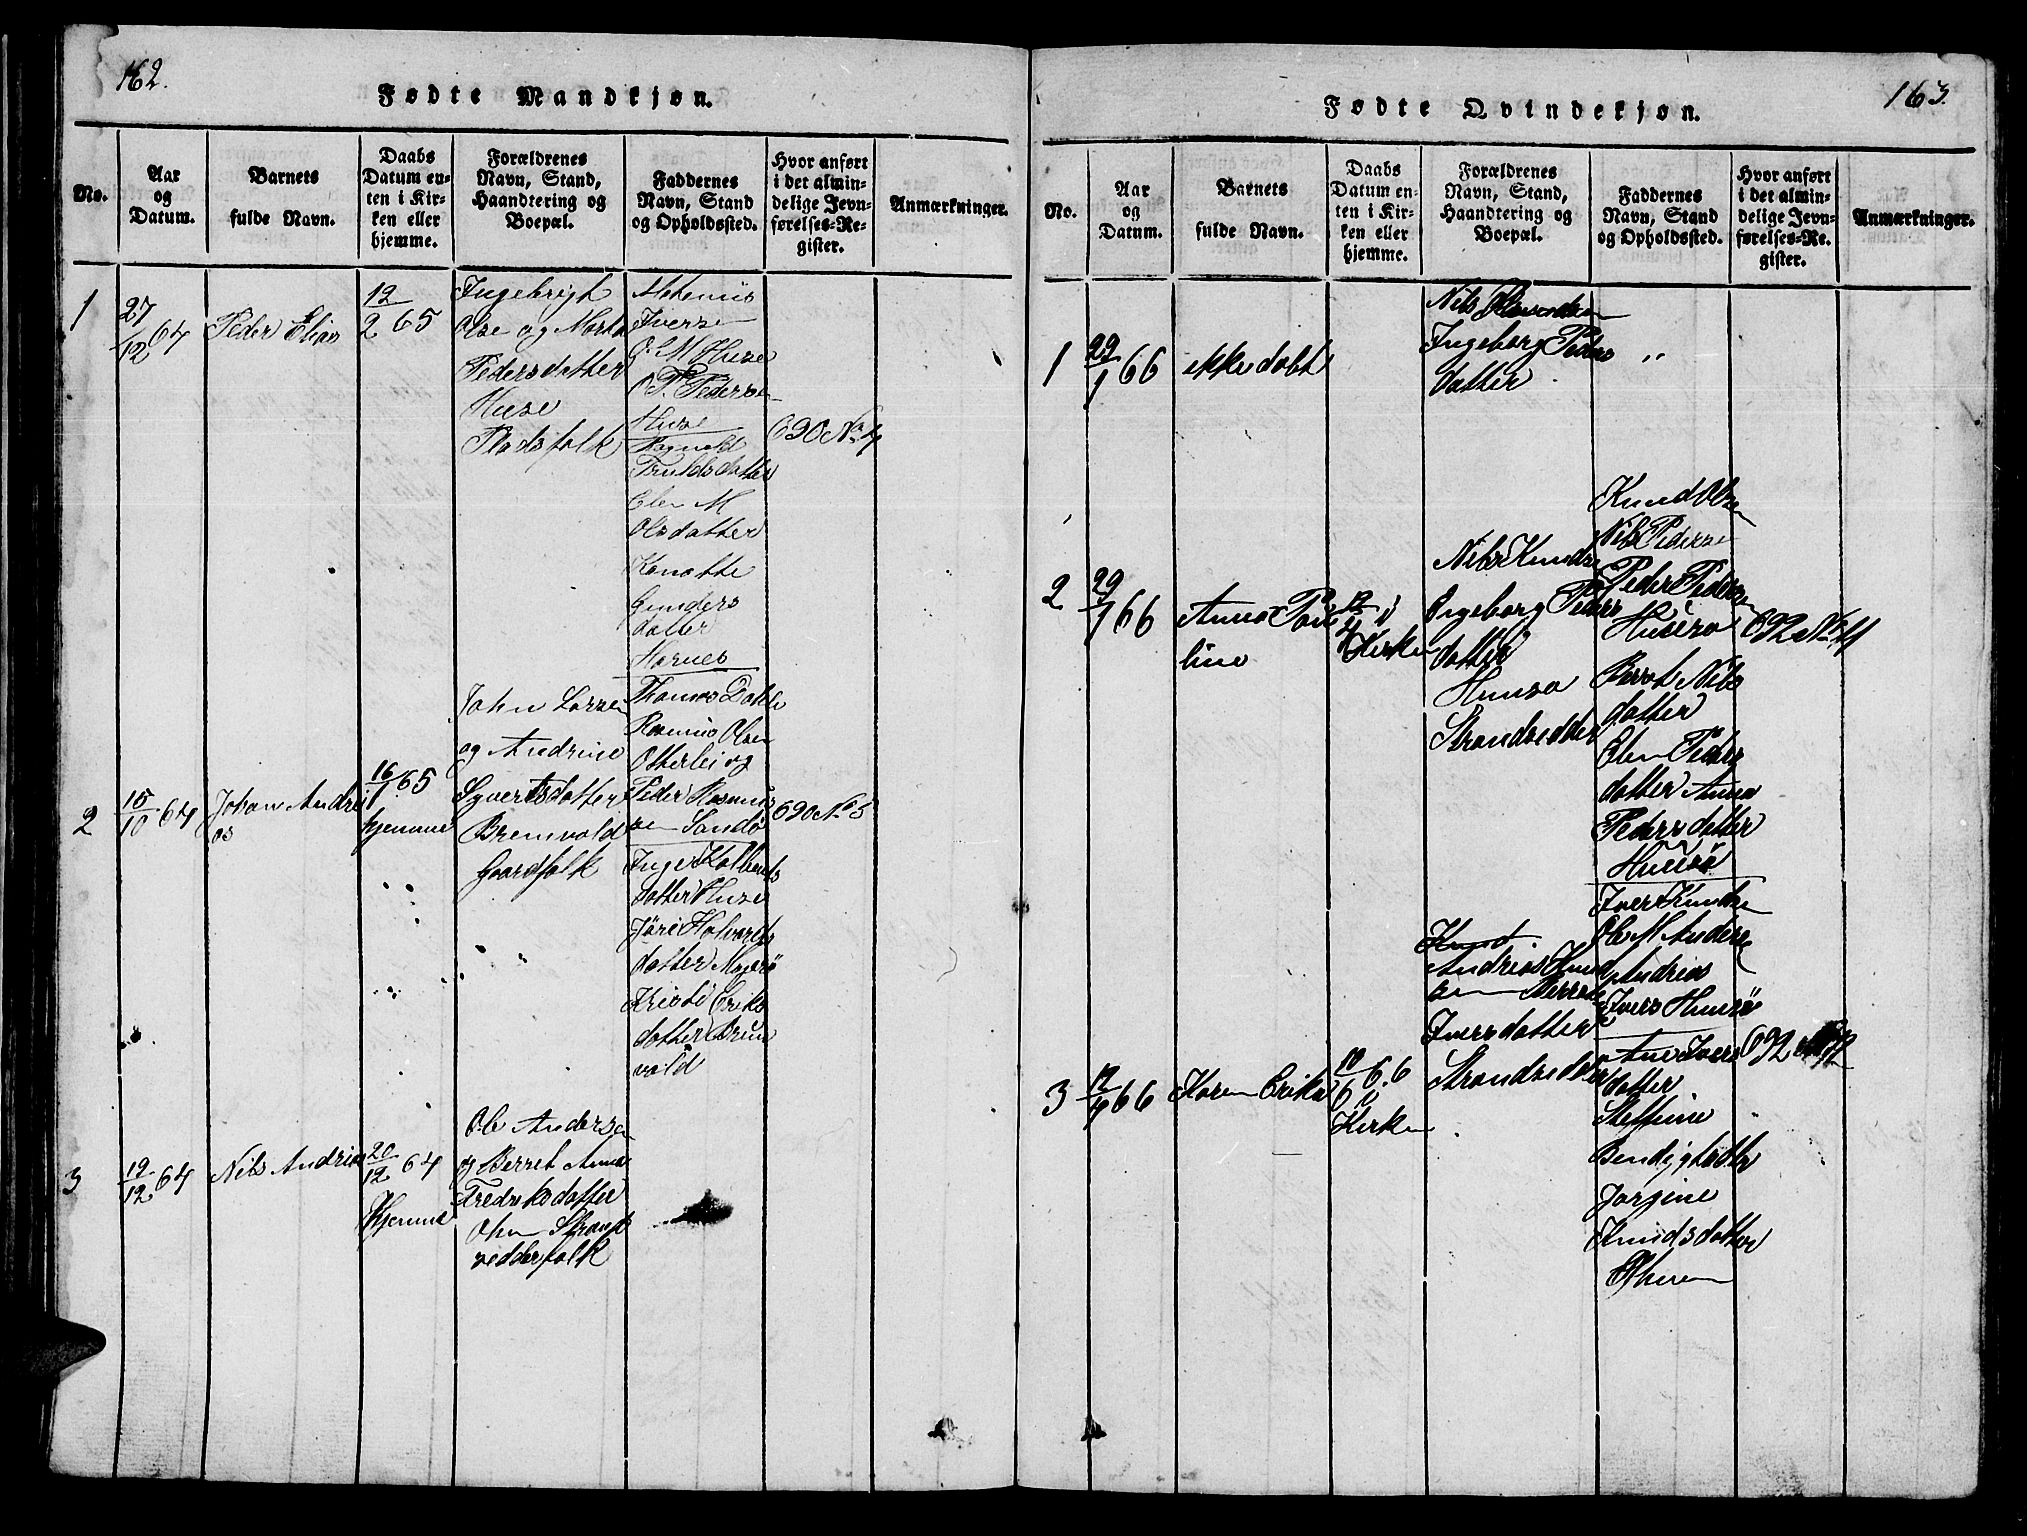 162.
Fødte Mandkjøn.
No.
Aar
og
Datum.
Barnets
fulde Navn.
Daabs
Datum en-
ten i Kir-
ken eller
hjemme.
Forældrenes
Navn, Stand,
Haandtering og
Boepæl.
Faddernes
Navn, Stand
og Opholdssted.
Hvor anført
i det almin-
delige Jevn-
førelses-Re-
gister.
Anmærkninger.
1
27/12 64
Peder Elias
12/2 65
Ingebrigt
Olse og Marta
Pedersdatter
Huse
Pladsfolk
Iverse
O. M Huse
O P. Pedersen
Huse
Ragnald
Truldsdatter
Elen M
Olsdatter
Gunders
datter
Harnes
690 No 4
2
15/10 64
Johan Andre
as
16/1 65
hjemme
John Larsen
og Andrine
Syvertsdatter
Bremvold
Gaardfolk
Thomas
Rasmus Olsen
Otterlei og
Peder Rasmus
sen Sandø
Inge
datter Huse
Jöri Halvords
datter
Kristi Eriks
datter Brem
vold
690 No 5
3
19/12 64
Nils Andrias
20/12 64
Hjemme
Ole Andersen
og Berret Anna
Fredriksdatter
Ohn Strand
sedderfolk
163.
Fødte Qvindekjøn.
No.
Aar
og
Datum.
Barnets
fulde Navn.
Daabs
Datum en-
ten i Kir-
ken eller
hjemme.
Forældrenes
Navn, Stand,
Haandtering og
Boepæl.
Faddernes
Navn, Stand
og Opholdssted.
Hvor anført
i det almin-
delige Jevn-
førelses-Re-
gister.
Anmærkninger.
1
29/1 66
ikke døbt
Nils
Ingeborg Peders
datter
"
2
29/1 66
Anna Pau
line
12/4 i
Kirken
Nils Knudse
Ingeborg Peders
datter
Huusø
Strandsedder
Knud Olsen
Nils Pederse
Peder Pedersen
Husø
Berret Nils
datter
Elen Peders
datter Anna
Pedersdatter
Husø
692 No 11
3
12/4 66
Karen Erika
10/6 66
i
Kirken
Knud
Andrias Knud
sen Berret
Iversdatter
Strandsedder
Iver Knudse
Ole M Anderse
Andrias
Ivers Huusö
Ane Ivers
datter
Steffine
Bendigtsdtr
Jorgine
Knudsdatter
Oheren
692